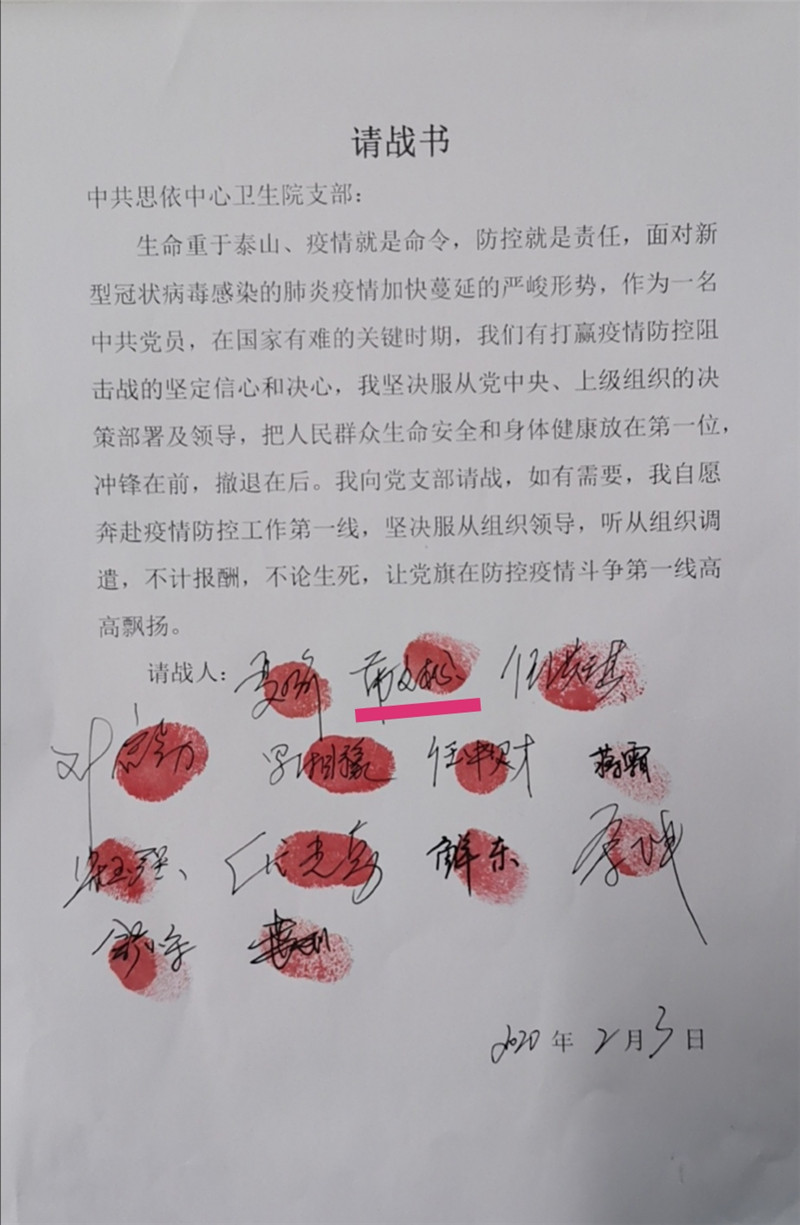 请战书
中共思依中心卫生院支部：
生命重于泰山、疫情就是命令，防控就是责任，面对新
型冠状病毒感染的肺炎疫情加快蔓延的严峻形势，作为一名
中共党员，在国家有难的关键时期，我们有打赢疫情防控阻
击战的坚定信心和决心，我坚决服从党中央、上级组织的决
策部署及领导，把人民群众生命安全和身体健康放在第一位，
冲锋在前，撤退在后。我向党支部请战，如有需要，我自愿
奔赴疫情防控工作第一线，坚决服从组织领导，听从组织调
遣，不计报酬，不论生死，让党旗在防控疫情斗争第一线高
高飘扬。
请战人：
任中财 蒋霜
鲜东
2020年2月3日